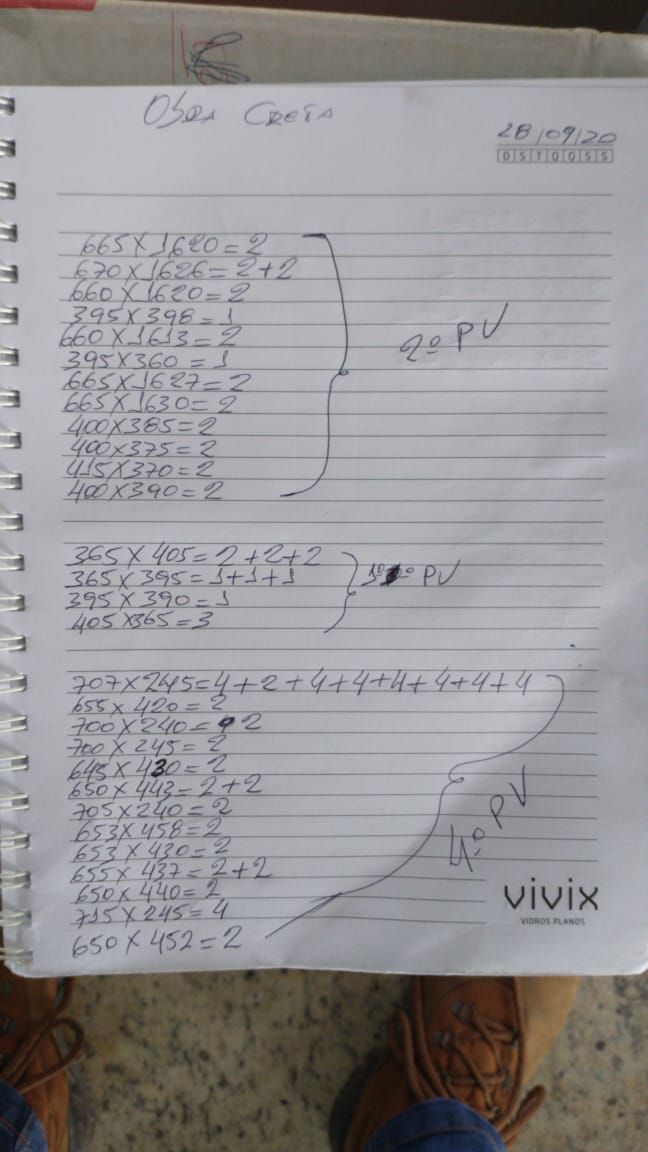 Obra Creta
28/09/20
D S T Q Q S S
665X1620=2
670X1626=2+2
660X1620=2
395X398=1
660X1613=2
395X360=1
665X1627=2
665X1630=2
400X385=2
400X375=2
415X370=2
400X390=2
2º PV
365X405=2+2+2
365X395=1+1+1
395X390=1
405X365=3
PV
707X245=4+2+4+4+4+4+4+4
655X420=2
700X240=2
700X245=2
645X430=2
650X443=2+2
705X240=2
653X458=2
653X430=2
655X437=2+2
650X440=2
715X245=4
650X452=2
4º PV
vivix
VIDROS PLANOS